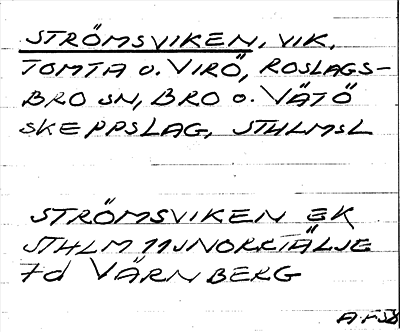 STRÖMSVIKEN, VIK,
TOMTA o. VIRÖ, ROSLAGS-
BRO SN, BRO o. VÄTÖ
SKEPPSLAG, STHLMSL
STRÖMSVIKEN EK
STHLM 11J NORRTÄLJE
7d VÄRNBERG